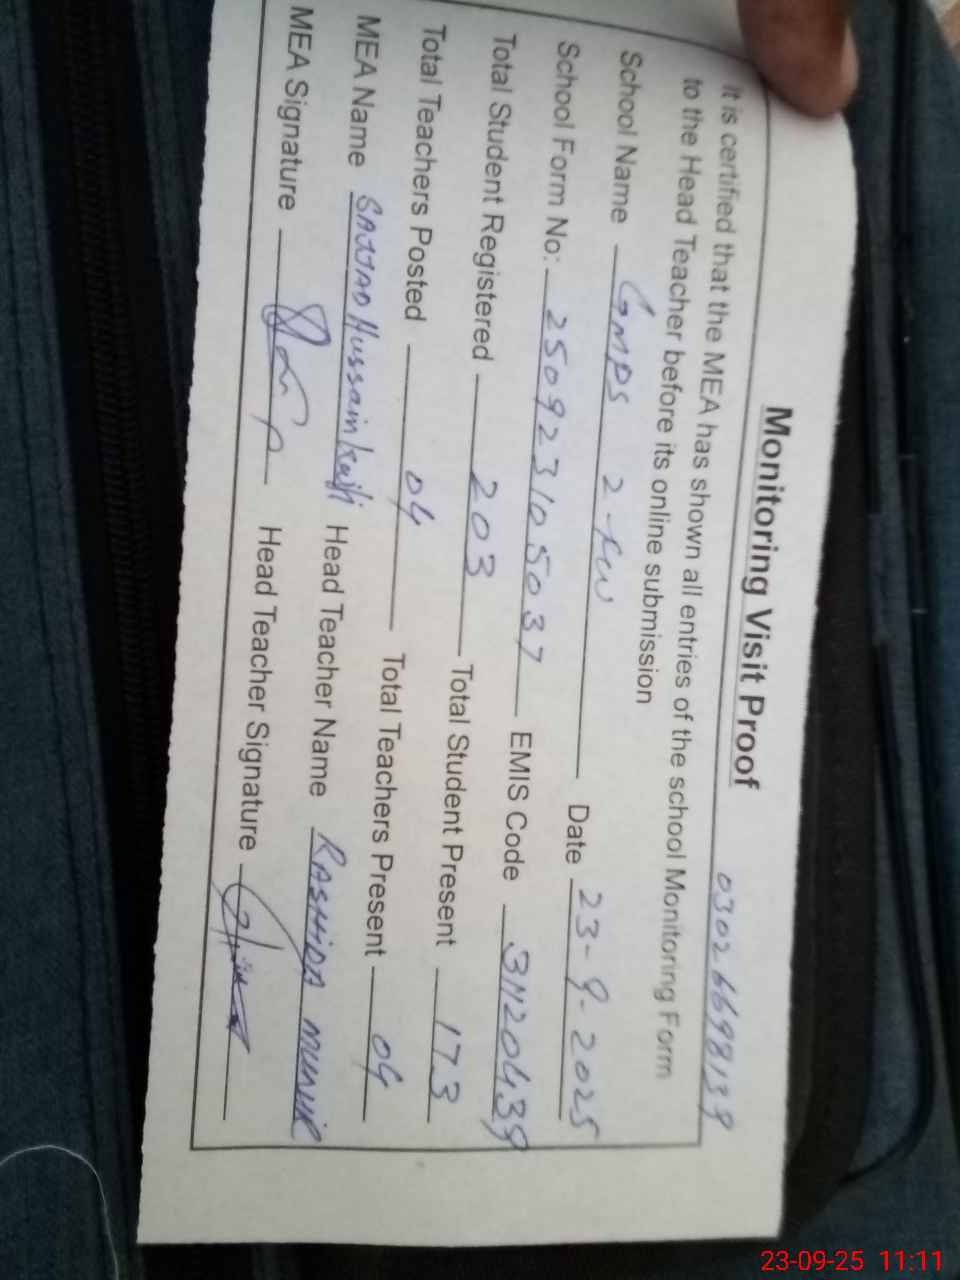 Monitoring Visit Proof 03026698139
It is certified that the MEA has shown all entries of the school Monitoring Form
to the Head Teacher before its online submission
School Name GMPS Date 23-9-2025
School Form No: 250923105037 EMIS Code
Total Student Registered 203 Total Student Present 173
Total Teachers Posted 04 Total Teachers Present 04
MEA Name SAJJAD Hussain Head Teacher Name RASHIDA MUNIR
MEA Signature Head Teacher Signature
23-09-25 11:11